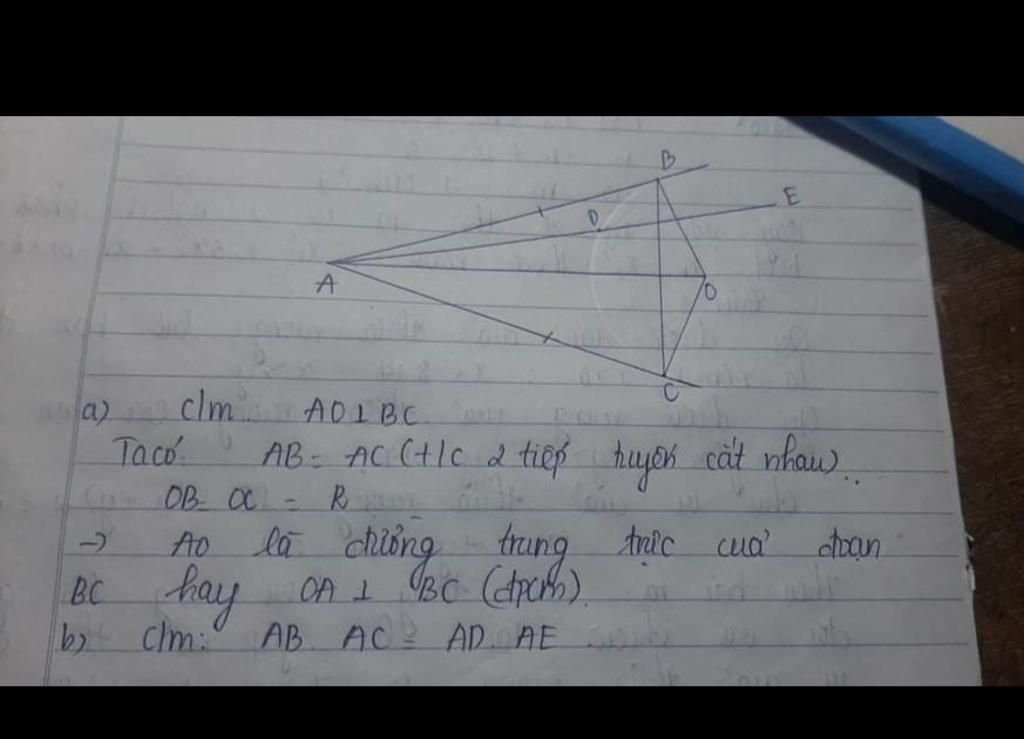 B
E
D
A
O
C
a) c/m. AO⊥BC
Ta có: AB = AC (t/c 2 tiếp tuyến cắt nhau)..
OB = OC = R
→ AO là đường trung trực của đoạn
BC hay OA ⊥ BC (đpcm).
b) C/m: AB. AC = AD. AE.